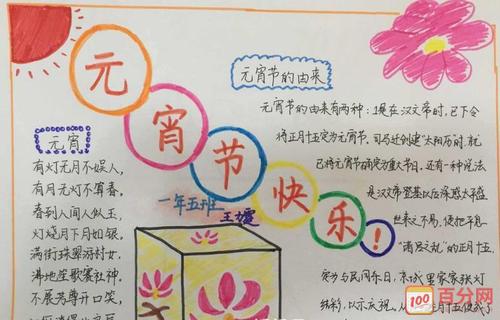 元宵节快乐!
元宵节的由来
元宵节的由来有两种：1是在汉文帝时，已下令
将正月十五定为元宵节，司马迁创建"太阳历"时，就
已将元宵节确定为重大节日，还有一种说法
是汉文帝登基以后深感太平盛
世来之不易，便把平息
"诸吕之乱"的正月十五
定为与民同乐日，京城里家家张灯
结彩，以示庆祝，从
元宵
有灯无月不娱人，
有月无灯不算春。
春到人间人似玉，
灯烧月下月如银。
满街珠翠游村女，
沸地笙歌赛社神。
不展芳尊开口笑，
一年五班
100 百分网